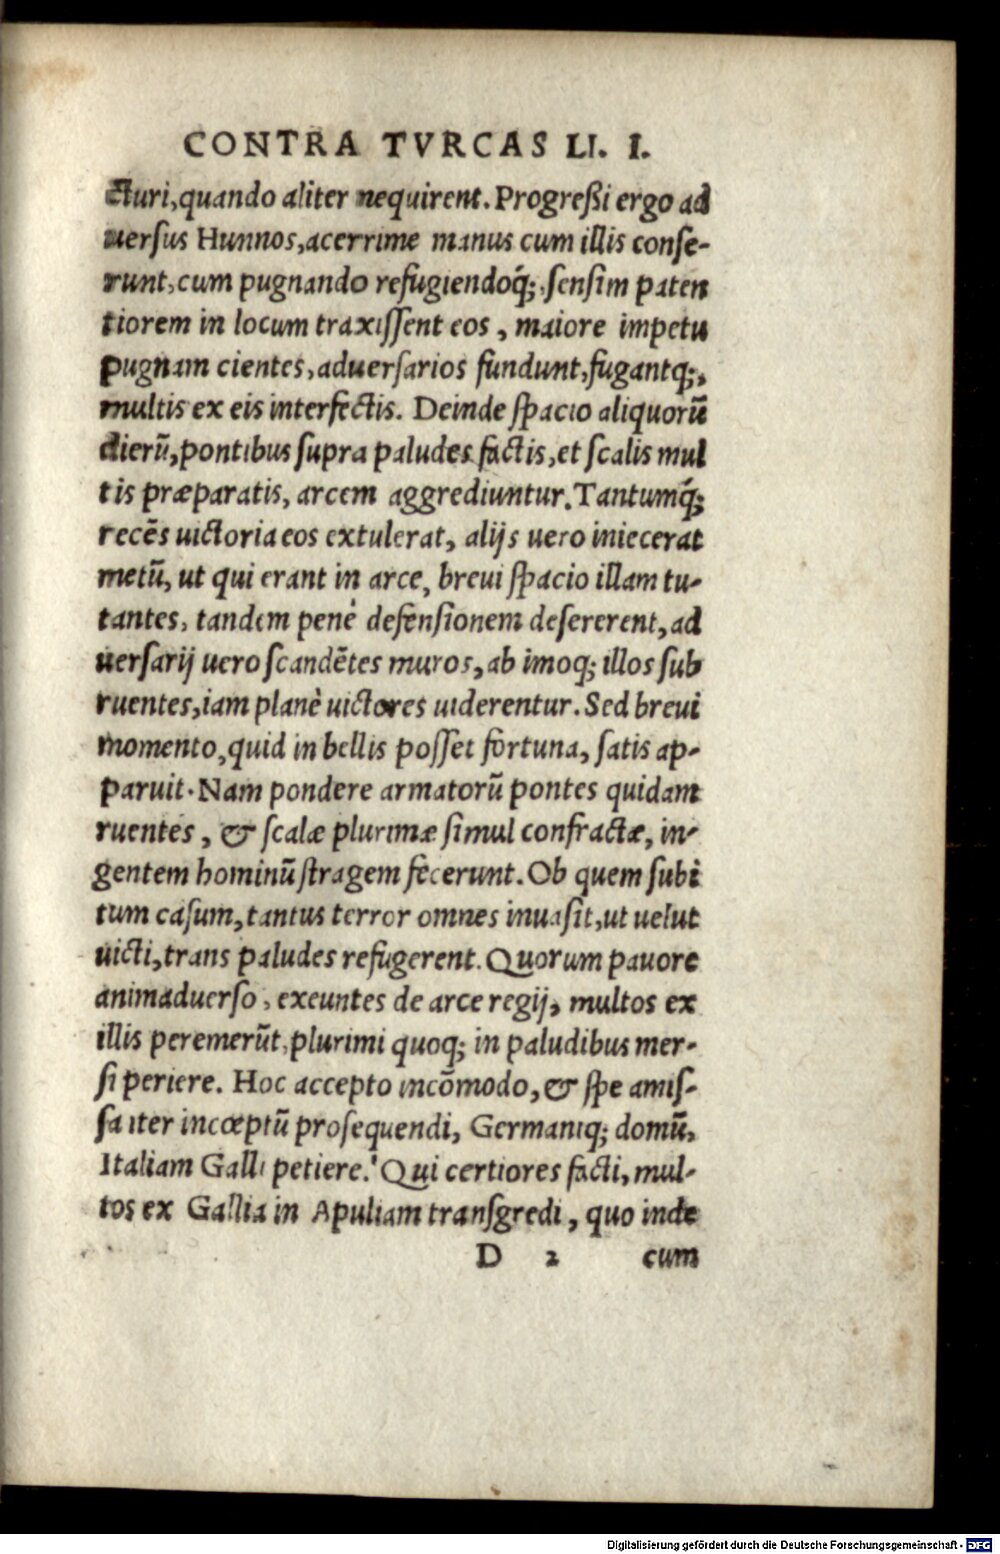 CONTRA TVRCAS LI. I.
cturi, quando aliter nequirent. Progreßi ergo ad
uersus Hunnos, acerrime manus cum illis conse-
runt, cum pugnando refugiendoq́;, sensim paten
tiorem in locum traxissent eos, maiore impetu
pugnam cientes, aduersarios fundunt, fugantq;,
multis ex eis interfectis. Deinde spacio aliquorũ
dierũ, pontibus supra paludes factis, et scalis mul
tis præparatis, arcem aggrediuntur. Tantumq́;
recẽs uictoria eos extulerat, alijs uero iniecerat
metũ, ut qui erant in arce, breui spacio illam tu-
tantes, tandem penè defensionem desererent, ad
uersarij uero scandẽtes muros, ab imoq; illos sub
ruentes, iam planè uictores uiderentur. Sed breui
momento, quid in bellis posset fortuna, satis ap-
paruit. Nam pondere armatorũ pontes quidam
ruentes, & scalæ plurimæ simul confractæ, in-
gentem hominũ stragem fecerunt. Ob quem subi
tum casum, tantus terror omnes inuasit, ut uelut
uicti, trans paludes refugerent. Quorum pauore
animaduerso, exeuntes de arce regij, multos ex
illis peremerũt, plurimi quoq; in paludibus mer-
si periere. Hoc accepto incõmodo, & spe amis-
sa iter incœptũ prosequendi, Germaniq; domũ,
Italiam Galli petiere. Qui certiores facti, mul-
tos ex Gallia in Apuliam transgredi, quo inde
D 2 cum
Digitalisierung gefördert durch die Deutsche Forschungsgemeinschaft - DFG